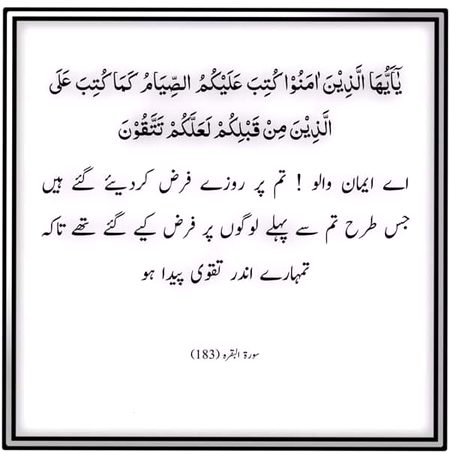 يٰٓاَيُّهَا الَّذِيْنَ اٰمَنُوْا كُتِبَ عَلَيْكُمُ الصِّيَامُ كَمَا كُتِبَ عَلَى
الَّذِيْنَ مِنْ قَبْلِكُمْ لَعَلَّكُمْ تَتَّقُوْنَ
اے ایمان والو ! تم پر روزے فرض کردیئے گئے ہیں
جس طرح تم سے پہلے لوگوں پر فرض کیے گئے تھے تاکہ
تمہارے اندر تقوی پیدا ہو
سورۃ البقرہ (183)